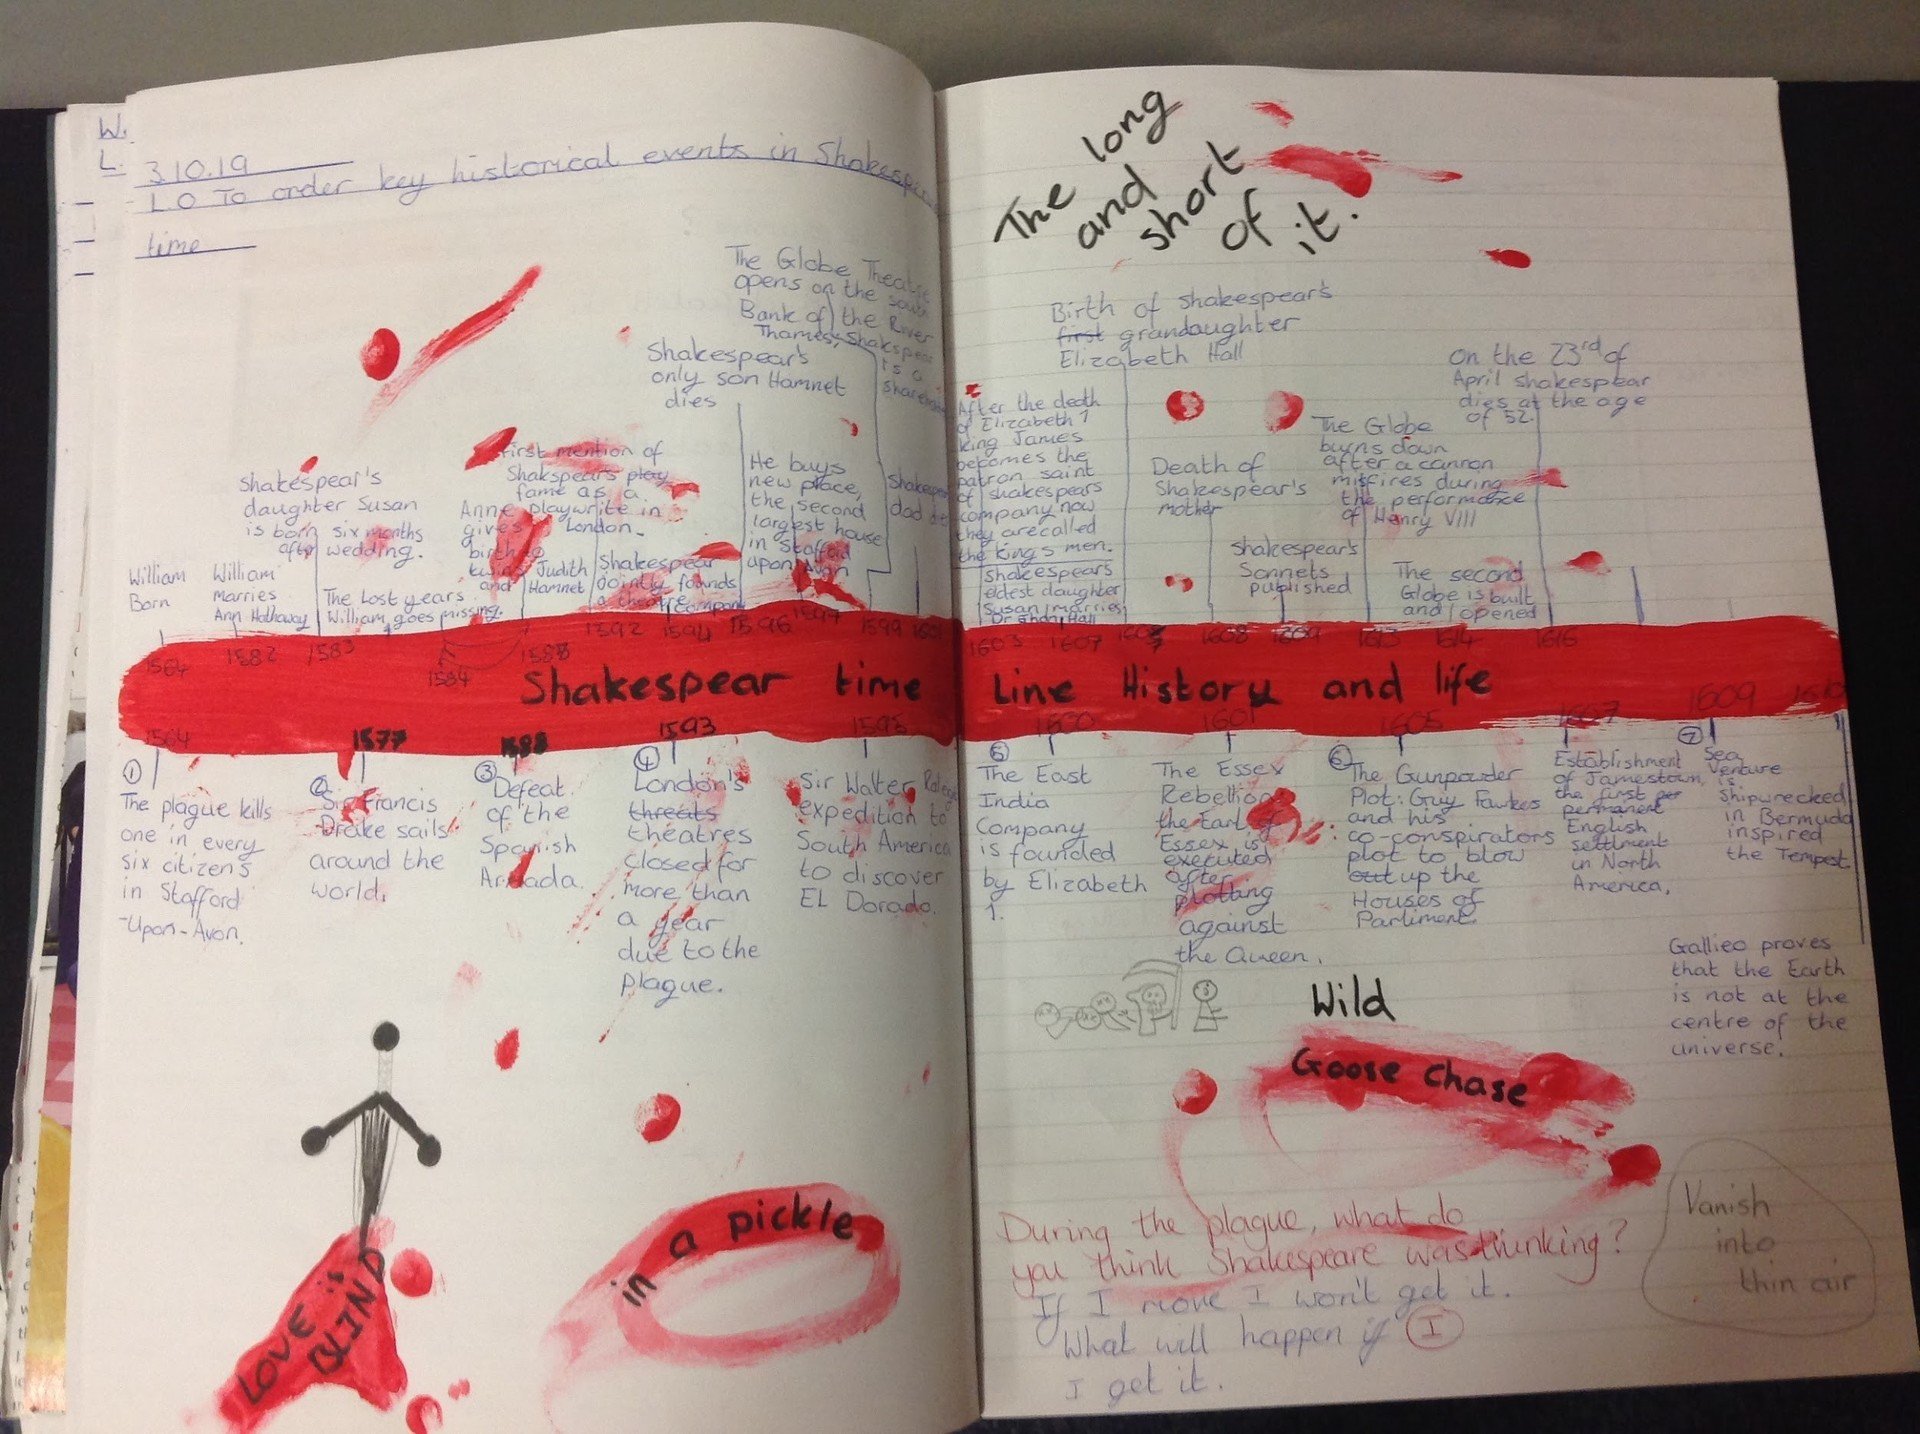 W.
L.
3.10.19
L.O To order key historical events in Shakespear
time
The Globe Theatre
opens on the south
Bank of the River
Thames, Shakspear
is a
Shakespear's
only son Hamnet
dies
First mention of
Shakspear's play
fame as a
playwrite in
London.
He buys
new place,
the second
largest house
in Stafford
upon Avon
Shakespear
dad
Shakespear's
daughter Susan
is born six months
after wedding.
Anne
gives
birth to
twins Judith
and Hamnet
Shakespear
Jointly founds
a theatre
Company
William
Born
William
marries
Ann Hathaway
The Lost years
William goes missing.
1564
1582
1583
1584
1588
1592
1594
1596
1597
1599
1601
Shakespear time
1564
1577
1588
1593
1595
1
The plague kills
one in every
six citizens
in Stafford
-Upon-Avon.
2
Sir Francis
Drake sails
around the
world.
3
Defeat
of the
Spanish
Armada.
4
London's
threats
theatres
closed for
more than
a year
due to the
plague.
Sir Walter Raleg
expedition to
South America
to discover
EL Dorado.
LOVE is
BLIND
in a pickle
The long
and
short
of
it.
Birth of Shakespear's
first grandaughter
Elizabeth Hall
After the death
of Elizabeth 1
King James
becomes the
patron saint
of shakespears
company now
they are called
the kings men.
Shakespears
eldest daughter
Susan marries
Dr Jhon Hall
Death of
Shakespear's
mother
Shakespear's
Sonnets
published
The Globe
burns down
after a cannon
misfires during
the performance
of Henry VIII
The second
Globe is built
and opened
On the 23rd of
April shakespear
dies at the age
of 52.
1603
1607
1608
1609
1613
1614
1616
Line History and life
1600
1601
1605
1607
1609
1610
5
The East
India
Company
is founded
by Elizabeth
1.
The Essex
Rebellion
the Earl of
Essex is
executed
after
plotting
against
the Queen.
6
The Gunpowder
Plot: Guy Fawkes
and his
co-conspirators
plot to blow
out up the
Houses of
Parliment.
Establishment
of Jamestown,
the first per
permanent
English
settlment
in North
America.
7
Sea
Venture
is
Shipwrecked
in Bermuda
inspired
the Tempest
Gallieo proves
that the Earth
is not at the
centre of the
universe.
Wild
Goose Chase
During the plague, what do
you think Shakespeare was thinking?
If I move I won't get it.
What will happen if I
I get it.
Vanish
into
thin air